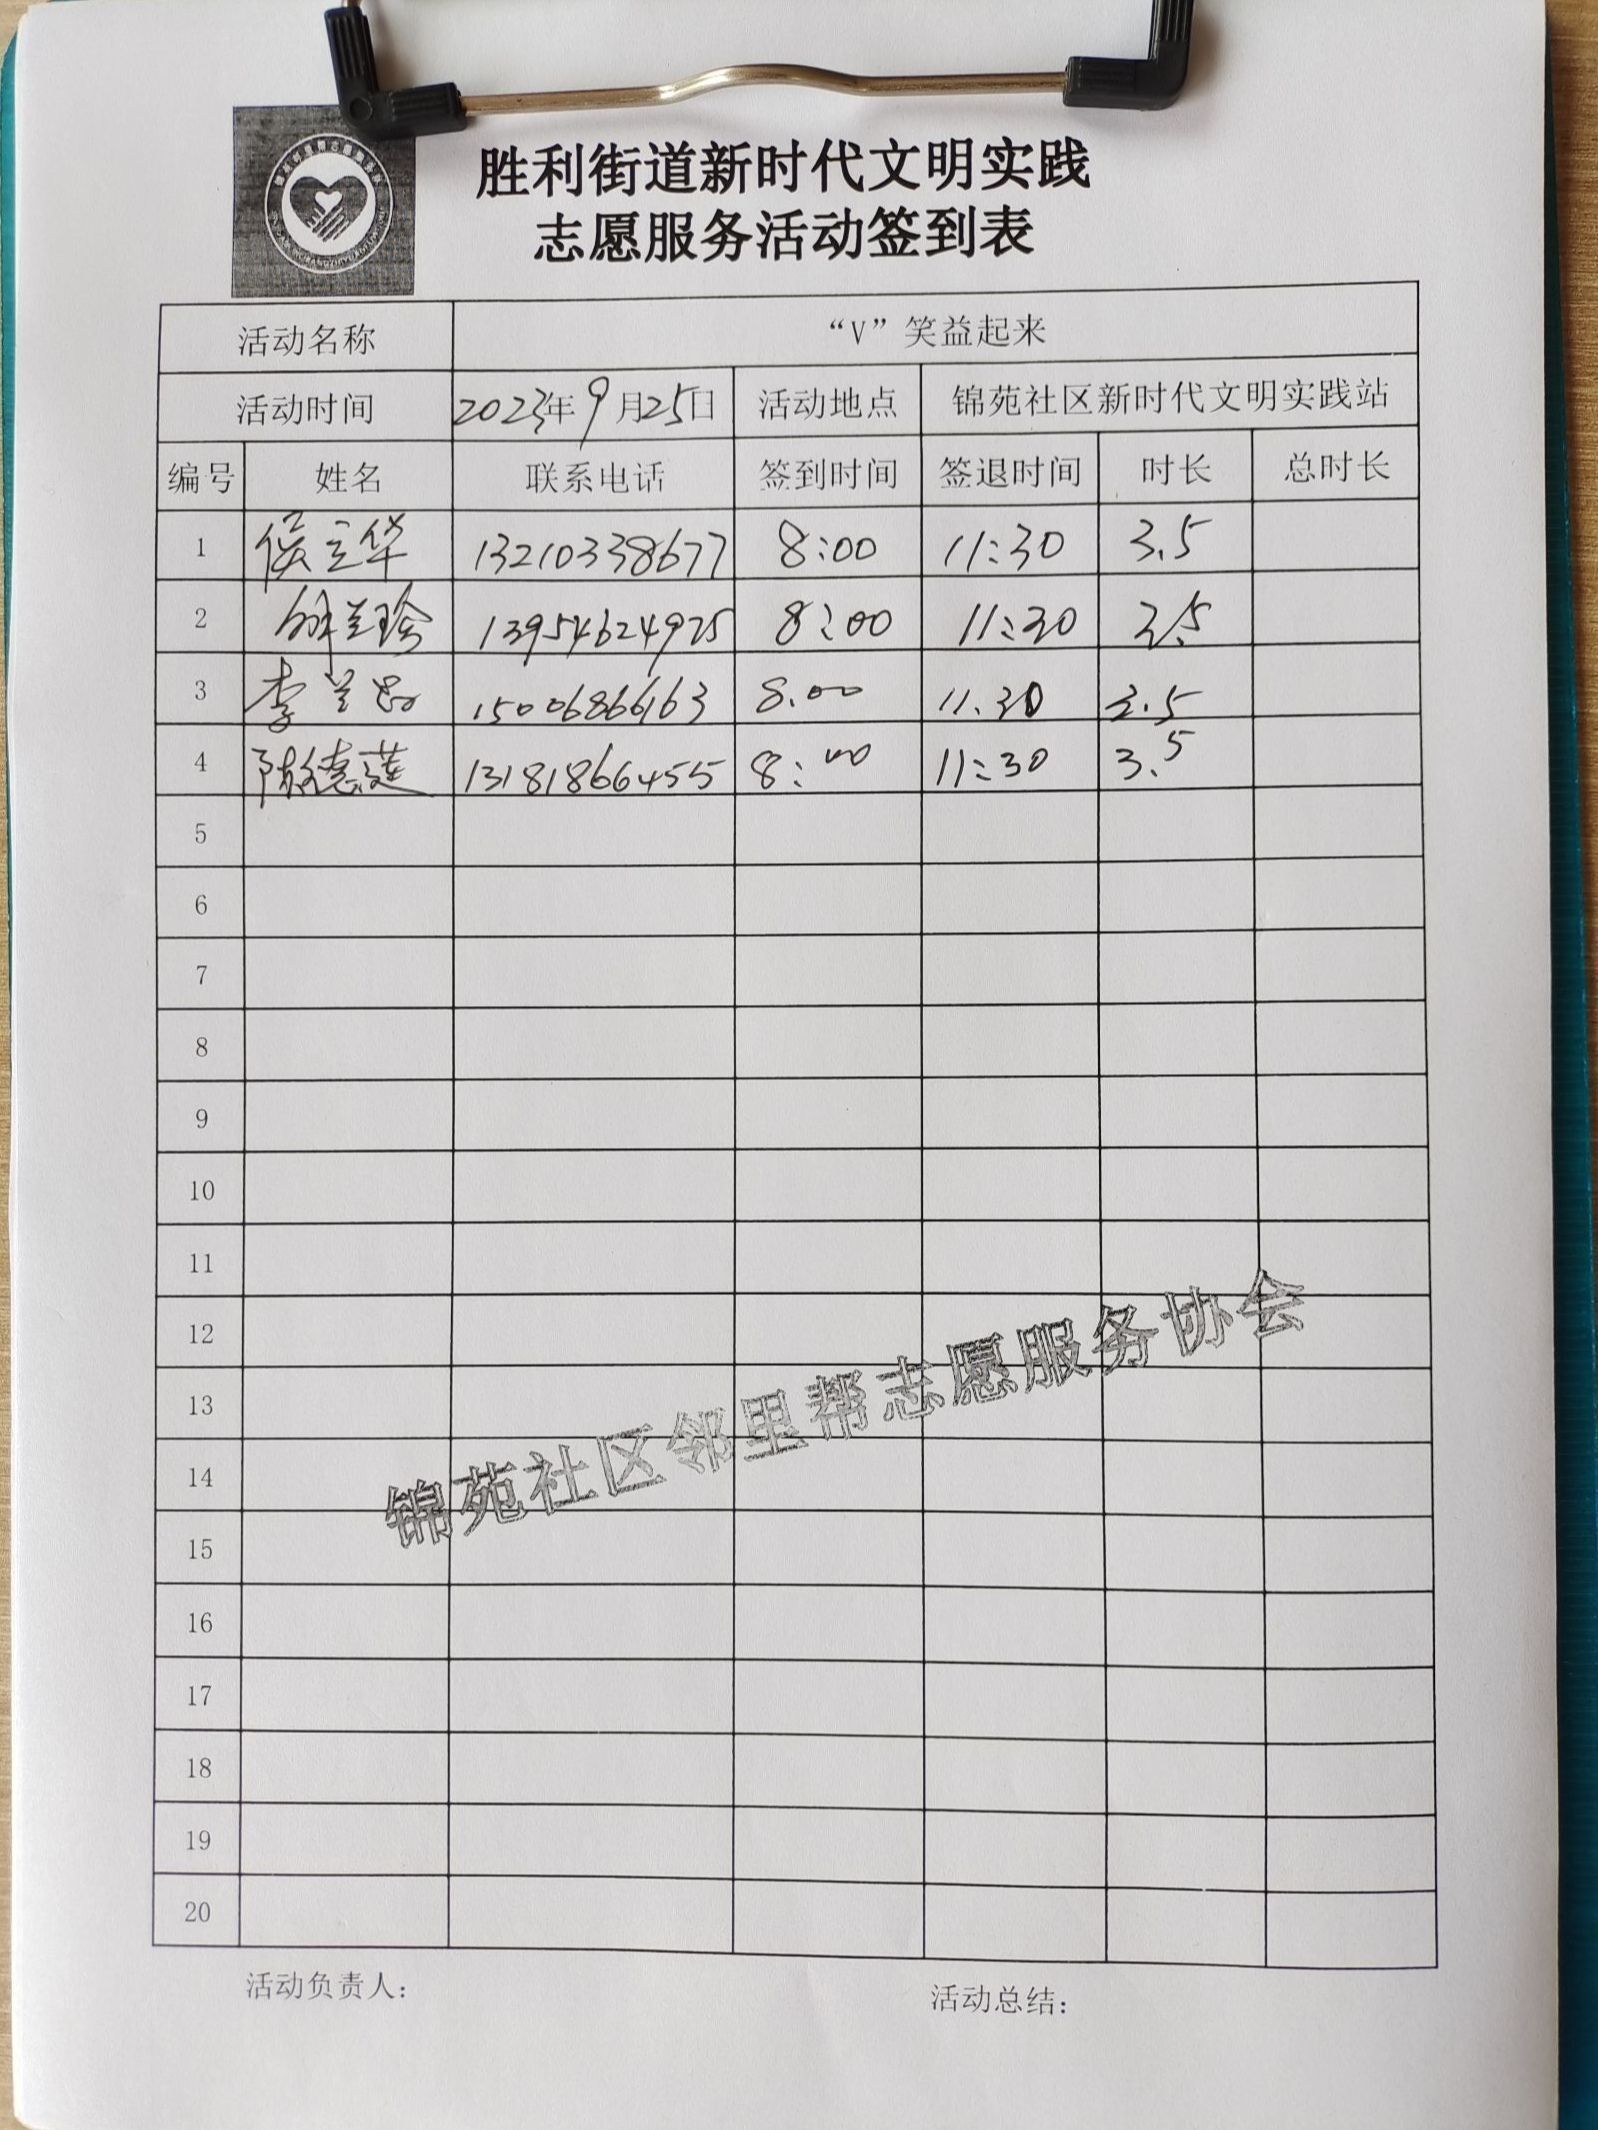 胜利街道新时代文明实践
志愿服务活动签到表
活动名称 “V”笑益起来
活动时间 2023年9月25日 活动地点 锦苑社区新时代文明实践站
编号 姓名 联系电话 签到时间 签退时间 时长 总时长
1 侯立华 13210338677 8:00 11:30 3.5
2 兰珍 13954624925 8:00 11:30 3.5
3 李兰 15006866163 8.00 11.30 3.5
4 陈德莲 13181866455 8:00 11:30 3.5
5
6
7
8
9
10
11
12
13
14
15
16
17
18
19
20
锦苑社区邻里帮志愿服务协会
活动负责人: 活动总结: